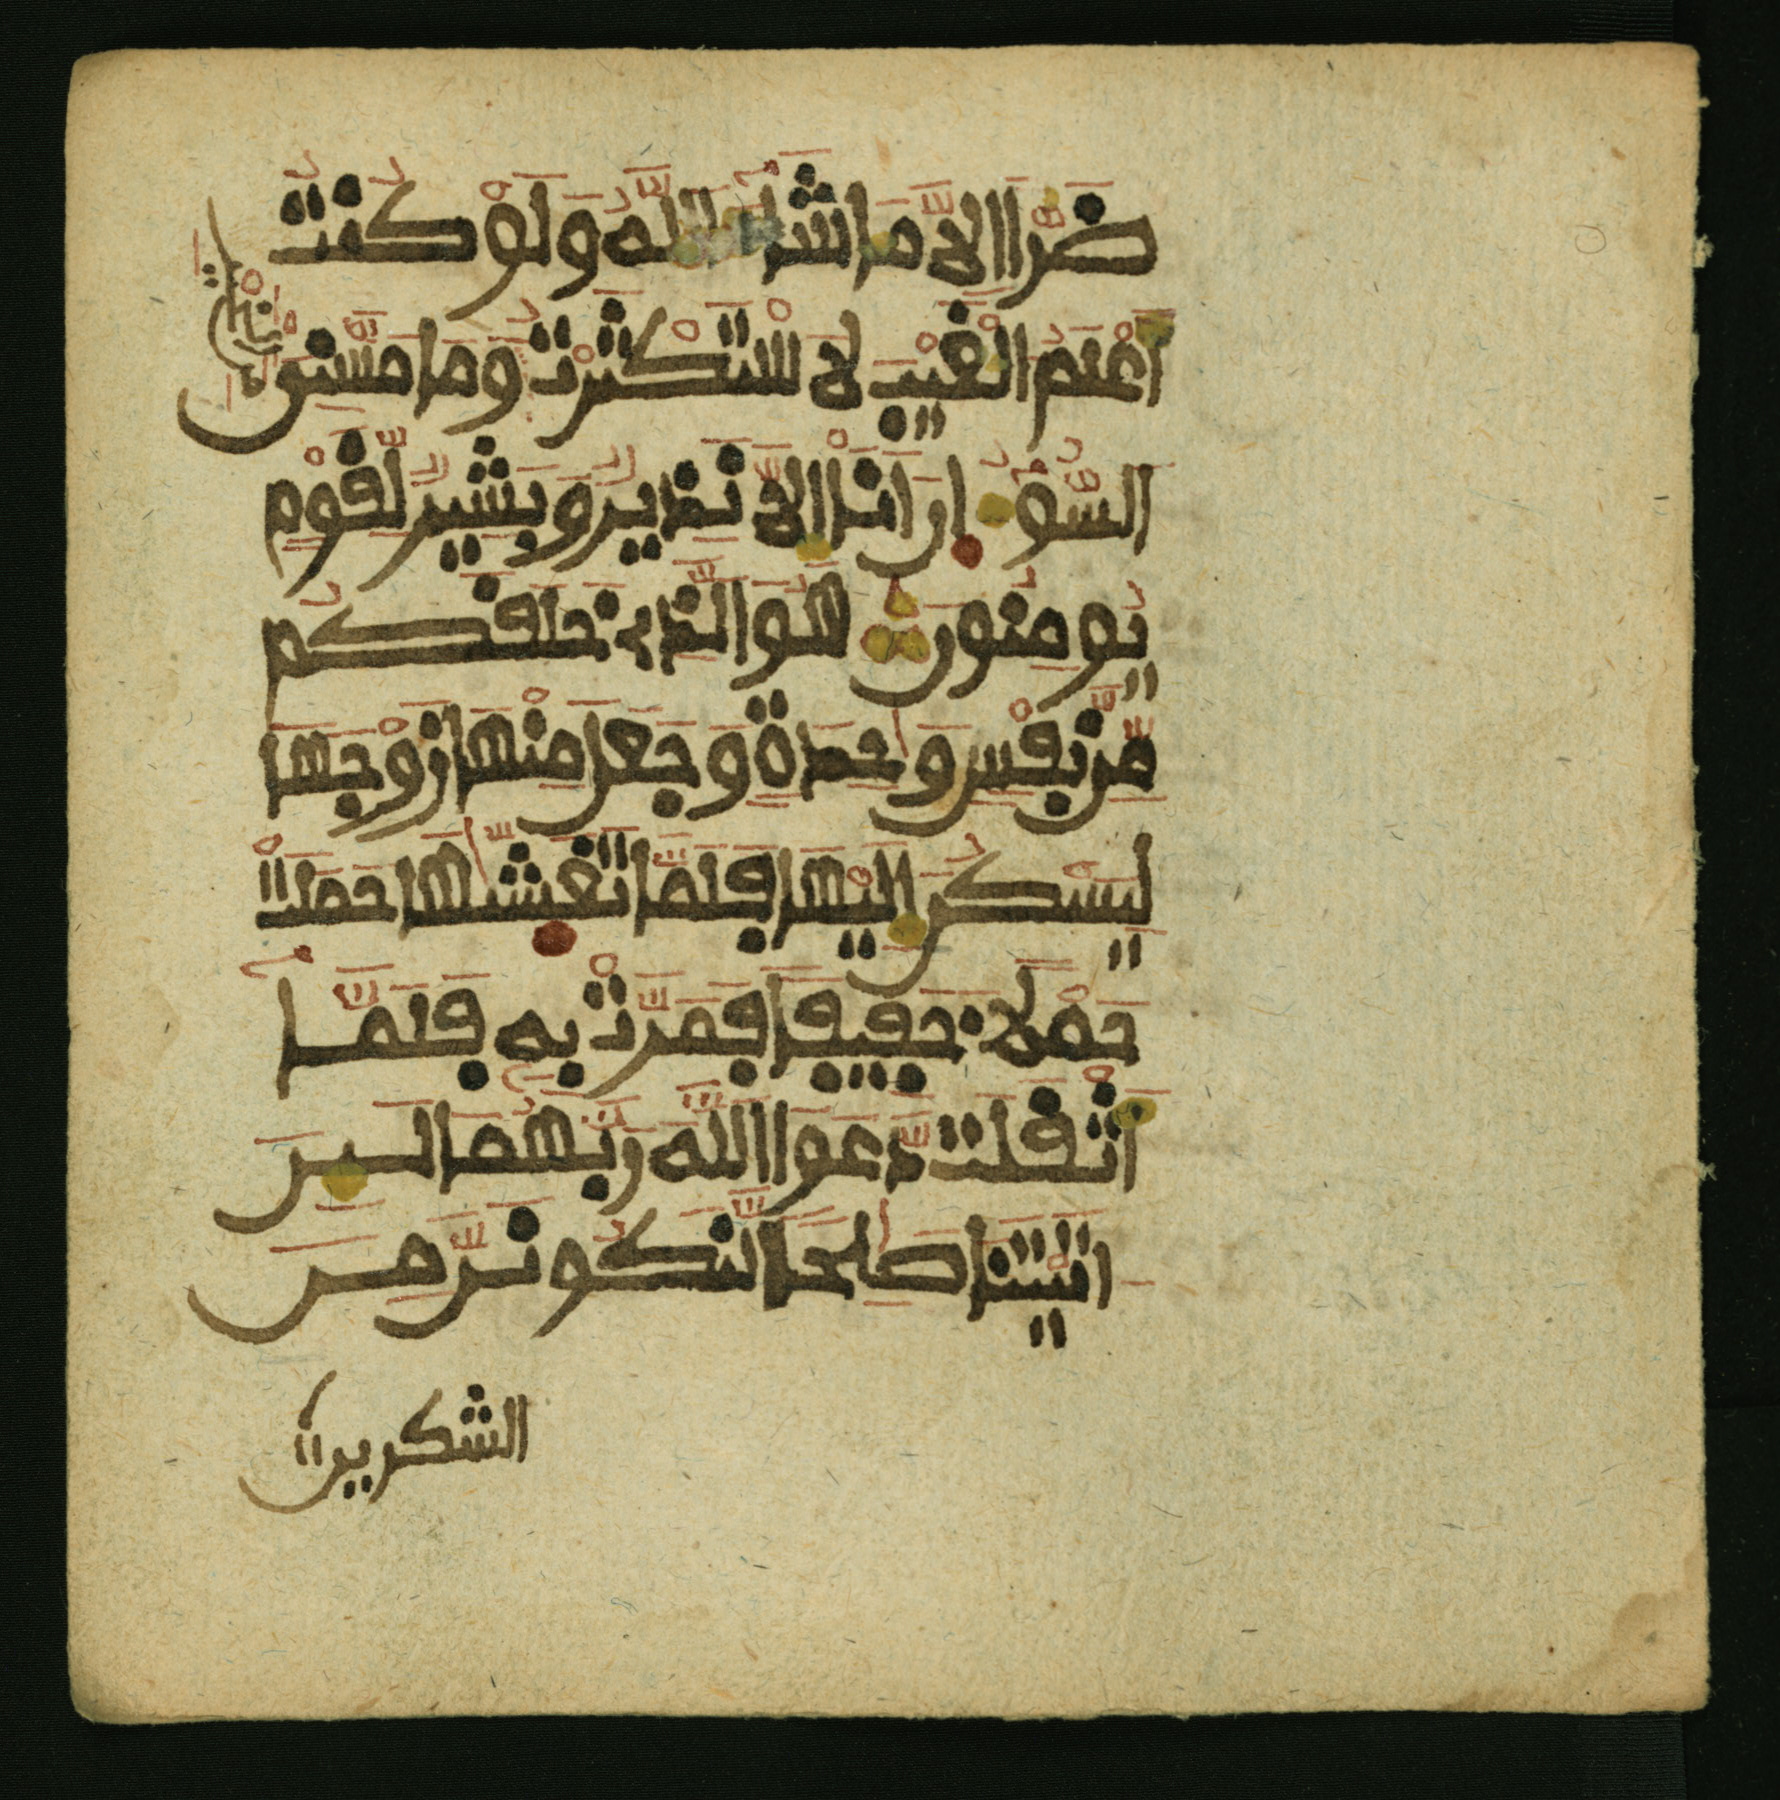 ضرا الا ما شاء الله ولو كنت
من الخير
اعلم الغيب لاستكثرت وما مسنى
السوء ان انا الا نذير وبشير لقوم
يومنون هو الذى خلقكم
من نفس وحدة وجعل منها زوجها
ليسكن اليها فلما تغشيها حملت
حملا خفيفا فمرت به فلما
اثقلت دعوا الله ربهما لين
اتيتنا صلحا لنكونن من
الشكرين